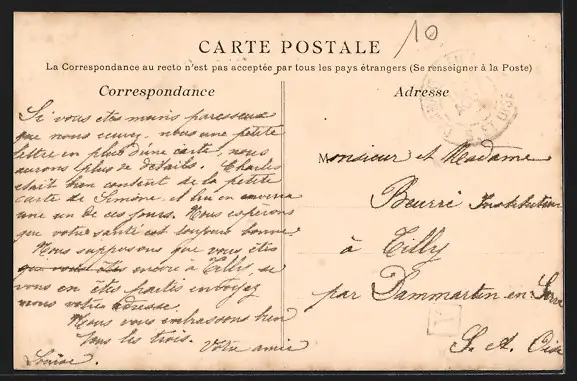 10
CARTE POSTALE
La Correspondance au recto n'est pas acceptée par tous les pays étrangers (Se renseigner à la Poste)
Correspondance
Adresse
Si vous êtes moins paresseux
que nous
une petite
lettre en plus d'une carte, nous
aurons plus de détails. Charles
était bien content de la petite
carte de Simone et lui en enverra
une un de ces jours. Nous espérons
que votre santé est toujours bonne.
Nous supposons que vous êtes
que vous êtes encore à Tilly, si
vous en êtes partis envoyez
nous votre adresse.
Nous vous embrassons bien
tous les trois. Votre amie
Louise.
Monsieur et Madame
Beurré Instituteur
à Tilly
par Dammartin en Serve
S. et Oise